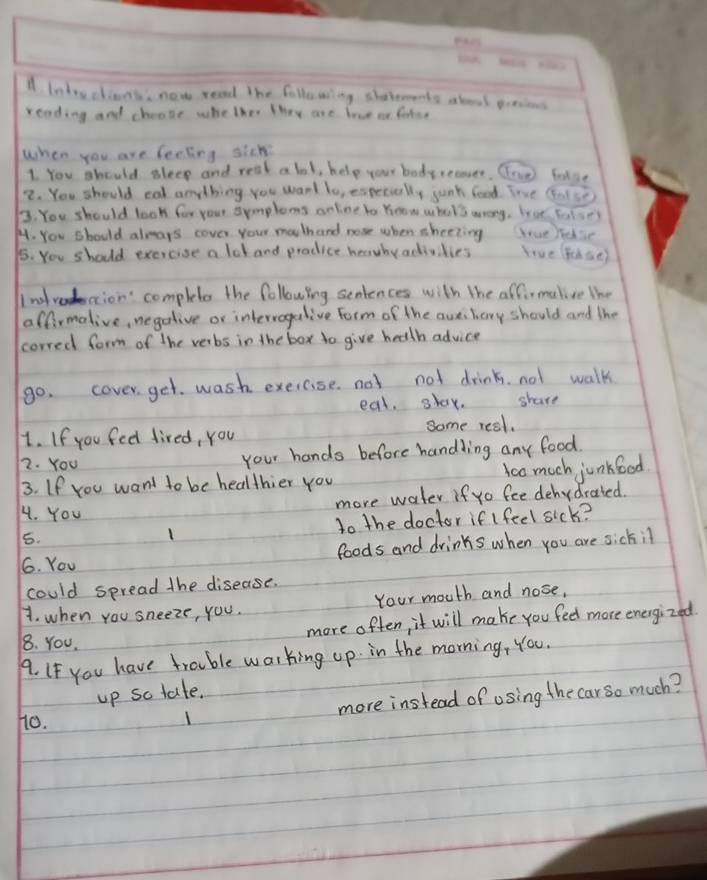 Intructions: now read the following statements about previous
reading and choose whether they are true or false
when you are feeling sick:
1. You should sleep and rest a lot, help your body recover. True False
2. You should eat anything you want to, especially junk food. True False
3. You should look for your symptoms online to know what's wrong. True False
4. You should always cover your mouth and nose when sheezing True False
5. You should exercise a lot and practice heavy activities True False
complete the following sentences with the affirmative the
affirmative, negative or interrogative form of the auxiliary should and the
correct form of the verbs in the box to give health advice
go. cover. get. wash exercise. not not drink. not walk
eat. stay. share
1. If you feel tired, you some rest.
2. You your hands before handling any food.
3. If you want to be healthier you too much junkfood.
4. You more water if yo fee dehydrated.
5. I to the doctor if I feel sick?
6. You foods and drinks when you are sick it
could spread the disease.
7. when you sneeze, you. Your mouth and nose,
8. You. more often, it will make you feel more energized.
9. If you have trouble warking up in the morning, you.
up so late.
10. I more instead of using the car so much?